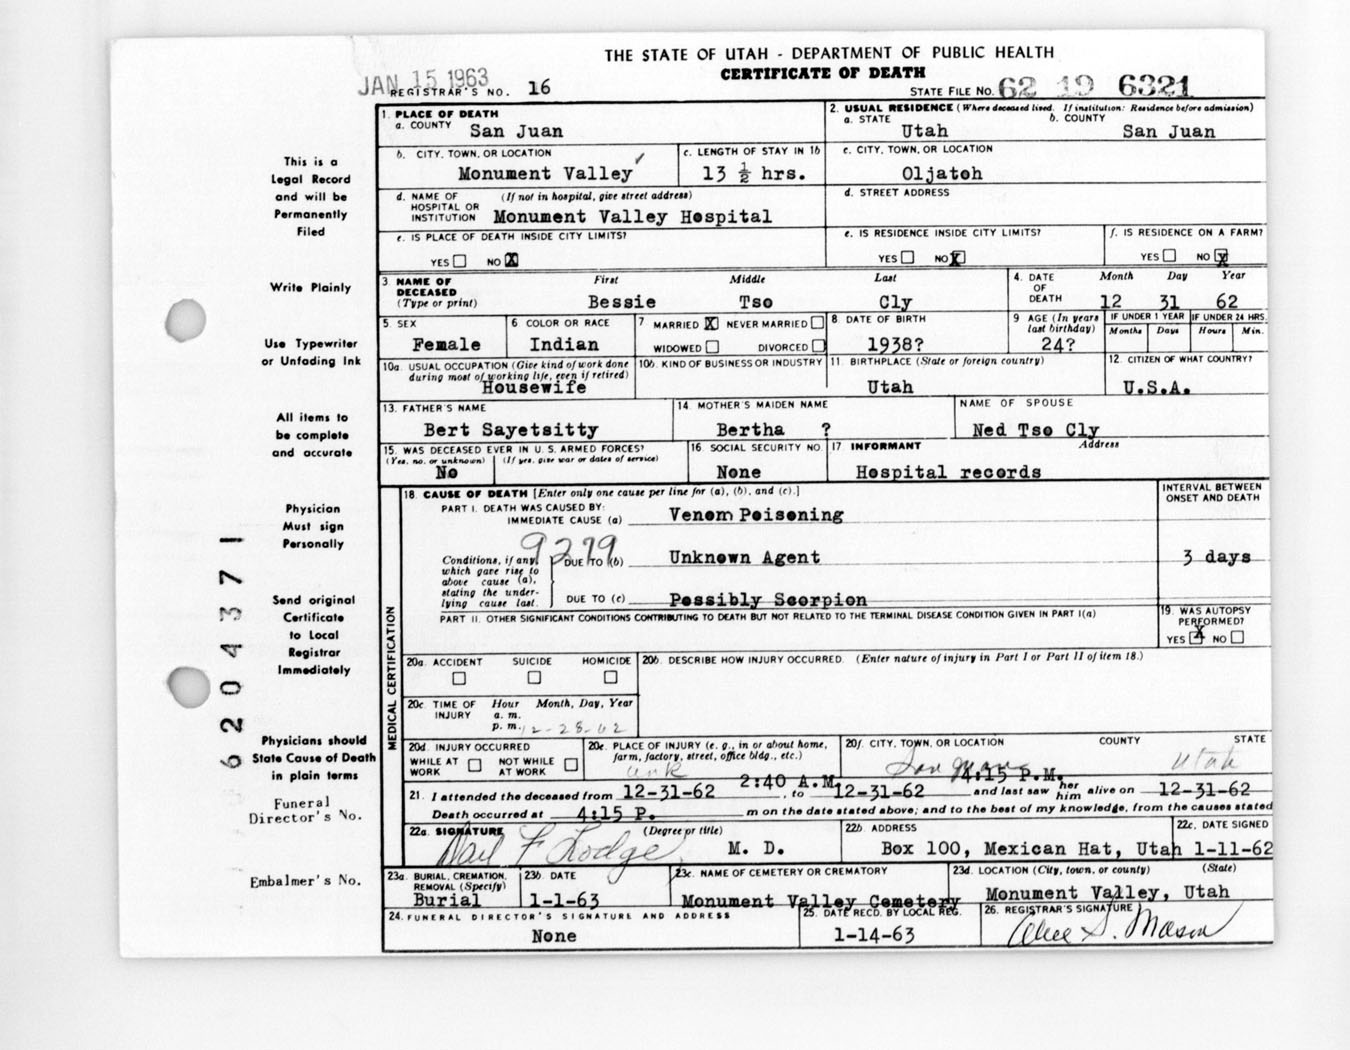 THE STATE OF UTAH - DEPARTMENT OF PUBLIC HEALTH
CERTIFICATE OF DEATH
JAN 15 1963
REGISTRAR'S NO. 16
STATE FILE NO. 62 19 6321
1. PLACE OF DEATH
a. COUNTY San Juan
2. USUAL RESIDENCE (Where deceased lived. If institution: Residence before admission)
a. STATE Utah b. COUNTY San Juan
b. CITY, TOWN, OR LOCATION Monument Valley
c. LENGTH OF STAY IN 1b 13 ½ hrs.
c. CITY, TOWN, OR LOCATION Oljatoh
d. NAME OF HOSPITAL OR INSTITUTION (If not in hospital, give street address) Monument Valley Hospital
d. STREET ADDRESS
e. IS PLACE OF DEATH INSIDE CITY LIMITS? YES NO X
e. IS RESIDENCE INSIDE CITY LIMITS? YES NO X
f. IS RESIDENCE ON A FARM? YES NO X
3. NAME OF DECEASED (Type or print)
First Middle Last
Bessie Tso Cly
4. DATE OF DEATH
Month Day Year
12 31 62
5. SEX Female
6. COLOR OR RACE Indian
7 MARRIED X NEVER MARRIED
WIDOWED DIVORCED
8 DATE OF BIRTH 1938?
9 AGE (In years last birthday) 24?
IF UNDER 1 YEAR Months Days
IF UNDER 24 HRS. Hours Min.
10a. USUAL OCCUPATION (Give kind of work done during most of working life, even if retired) Housewife
10b. KIND OF BUSINESS OR INDUSTRY
11. BIRTHPLACE (State or foreign country) Utah
12. CITIZEN OF WHAT COUNTRY? U.S.A.
13. FATHER'S NAME Bert Sayetsitty
14 MOTHER'S MAIDEN NAME Bertha ?
NAME OF SPOUSE Ned Tso Cly
15. WAS DECEASED EVER IN U. S. ARMED FORCES?
(Yes, no, or unknown) (If yes, give war or dates of service)
No
16. SOCIAL SECURITY NO. None
17. INFORMANT Address
Hospital records
18. CAUSE OF DEATH [Enter only one cause per line for (a), (b), and (c).]
INTERVAL BETWEEN ONSET AND DEATH
PART I. DEATH WAS CAUSED BY:
IMMEDIATE CAUSE (a) Venom Poisoning
9279
Conditions, if any, which gave rise to above cause (a), stating the underlying cause last.
DUE TO (b) Unknown Agent 3 days
DUE TO (c) Possibly Scorpion
PART II. OTHER SIGNIFICANT CONDITIONS CONTRIBUTING TO DEATH BUT NOT RELATED TO THE TERMINAL DISEASE CONDITION GIVEN IN PART I(a)
19. WAS AUTOPSY PERFORMED?
YES X NO
MEDICAL CERTIFICATION
20a. ACCIDENT SUICIDE HOMICIDE
20b. DESCRIBE HOW INJURY OCCURRED. (Enter nature of injury in Part I or Part II of item 18.)
20c. TIME OF INJURY Hour Month, Day, Year
a. m.
p. m. 12-28-62
20d. INJURY OCCURRED
WHILE AT WORK NOT WHILE AT WORK
20e. PLACE OF INJURY (e. g., in or about home, farm, factory, street, office bldg., etc.)
unk
20f. CITY, TOWN, OR LOCATION COUNTY STATE
Utah
2:40 A.M. 4:15 P.M.
21. I attended the deceased from 12-31-62, to 12-31-62 and last saw her him alive on 12-31-62
Death occurred at 4:15 P. m on the date stated above; and to the best of my knowledge, from the causes stated
22a. SIGNATURE (Degree or title)
F Lodge M. D.
22b. ADDRESS
Box 100, Mexican Hat, Utah
22c. DATE SIGNED
1-11-62
23a. BURIAL, CREMATION, REMOVAL (Specify) Burial
23b. DATE 1-1-63
23c. NAME OF CEMETERY OR CREMATORY Monument Valley Cemetery
23d. LOCATION (City, town, or county) (State)
Monument Valley, Utah
24. FUNERAL DIRECTOR'S SIGNATURE AND ADDRESS
None
25. DATE RECD. BY LOCAL REG.
1-14-63
26. REGISTRAR'S SIGNATURE
S. Mason
This is a
Legal Record
and will be
Permanently
Filed
Write Plainly
Use Typewriter
or Unfading Ink
All items to
be complete
and accurate
Physician
Must sign
Personally
Send original
Certificate
to Local
Registrar
Immediately
Physicians should
State Cause of Death
in plain terms
Funeral
Director's No.
Embalmer's No.
6204371